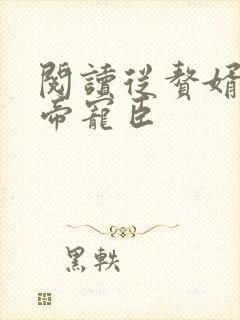 閱讀從贅婿
帝寵臣
黑軼